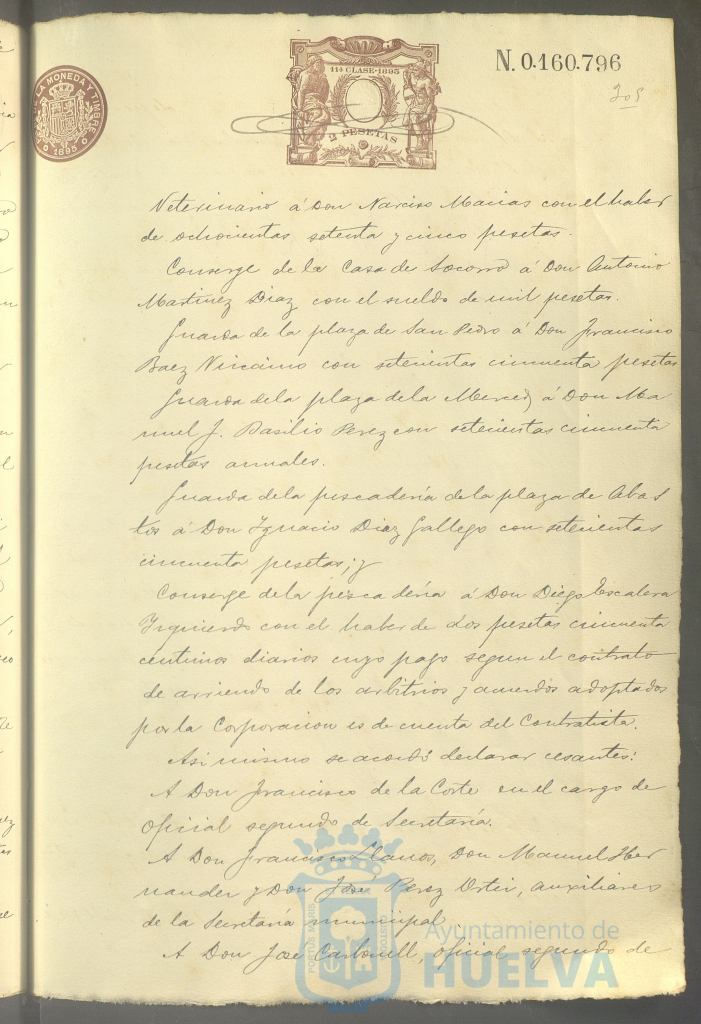 DE LA MONEDA Y TIMBRE
1895
11ª CLASE-1895
2 PESETAS
N. 0.160.796
205
Veterinario á Don Narciso Macias con el haber
de ochocientas setenta y cinco pesetas.
Conserge de la Casa de Socorro á Don Antonio
Martinez Diaz con el sueldo de mil pesetas.
Guarda de la plaza de San Pedro á Don Francisco
Baez Vizcaino con setecientas cincuenta pesetas
Guarda de la plaza de la Merced á Don Ma
nuel J. Basilio Perez con setecientas cincuenta
pesetas anuales.
Guarda de la pescadería de la plaza de Abas
tos á Don Ignacio Diaz Gallego con setecientas
cincuenta pesetas; y
Conserge de la pescadería á Don Diego Escalera
Izquierdo con el haber de dos pesetas cincuenta
centimos diarios cuyo pago segun el contrato
de arriendo de los arbitrios y acuerdos adoptados
por la Corporacion es de cuenta del Contratista.
Asi mismo se acordó declarar cesantes:
A Don Francisco de la Corte en el cargo de
oficial segundo de Secretaría.
A Don Francisco Llanos, Don Manuel Her
nandez y Don Jose Perez Ortiz, auxiliares
de la Secretaría municipal
A Don Jose Carbonell, oficial segundo de
PORTUS MARIS
CUSTODIA
Ayuntamiento de
HUELVA